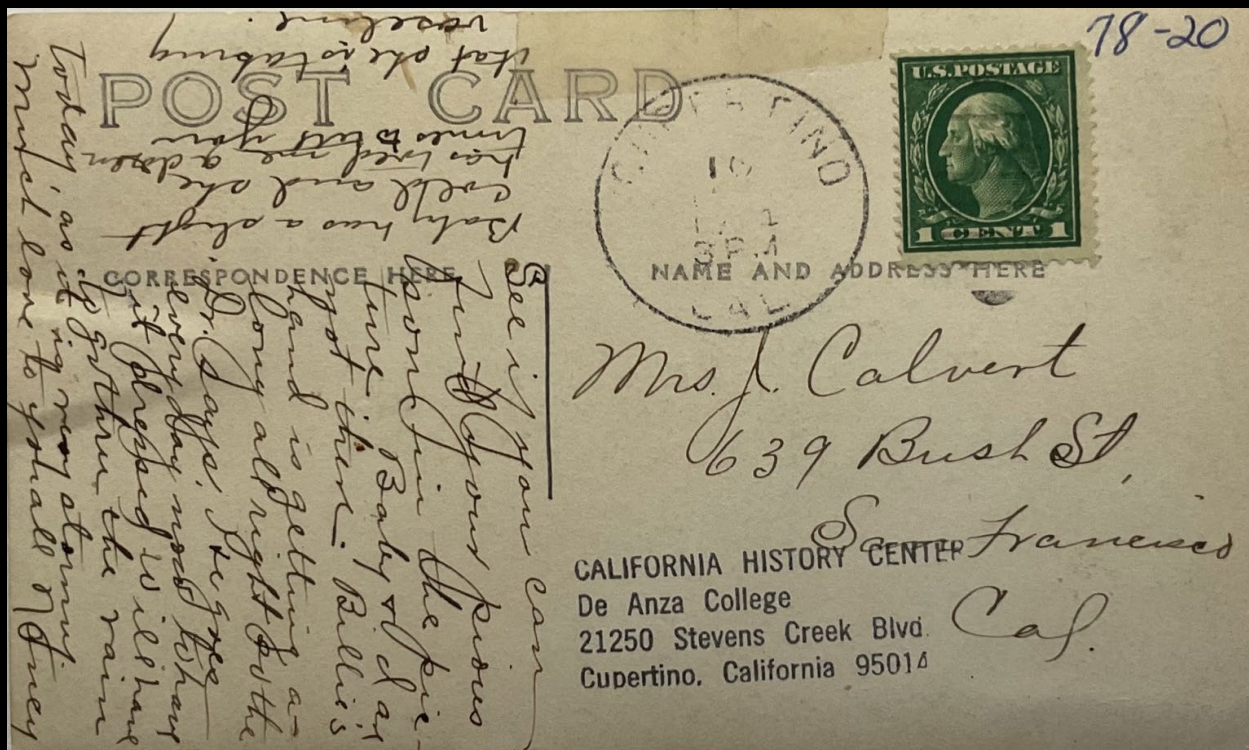 78-20
U.S. POSTAGE
1 CENT 1
POST CARD
CUPERTINO
3PM
CAL.
CORRESPONDENCE HERE
NAME AND ADDRESS HERE
Mrs. J. Calvert
639 Bush St,
San Francisco
Cal.
CALIFORNIA HISTORY CENTER
De Anza College
21250 Stevens Creek Blvd.
Cupertino, California 95014
See if you can
find your pious
son in the pic-
ture. Baby & I are
not there. Billie's
hand is getting a-
long all right so the
Dr. says. He goes
every day now to have
it dressed will have
to go thru the rain
today, as it is very stormy.
Much love to you all
Baby has a slight
cold and she
has told me a dozen
times to tell you
that she is taking
vaseline.